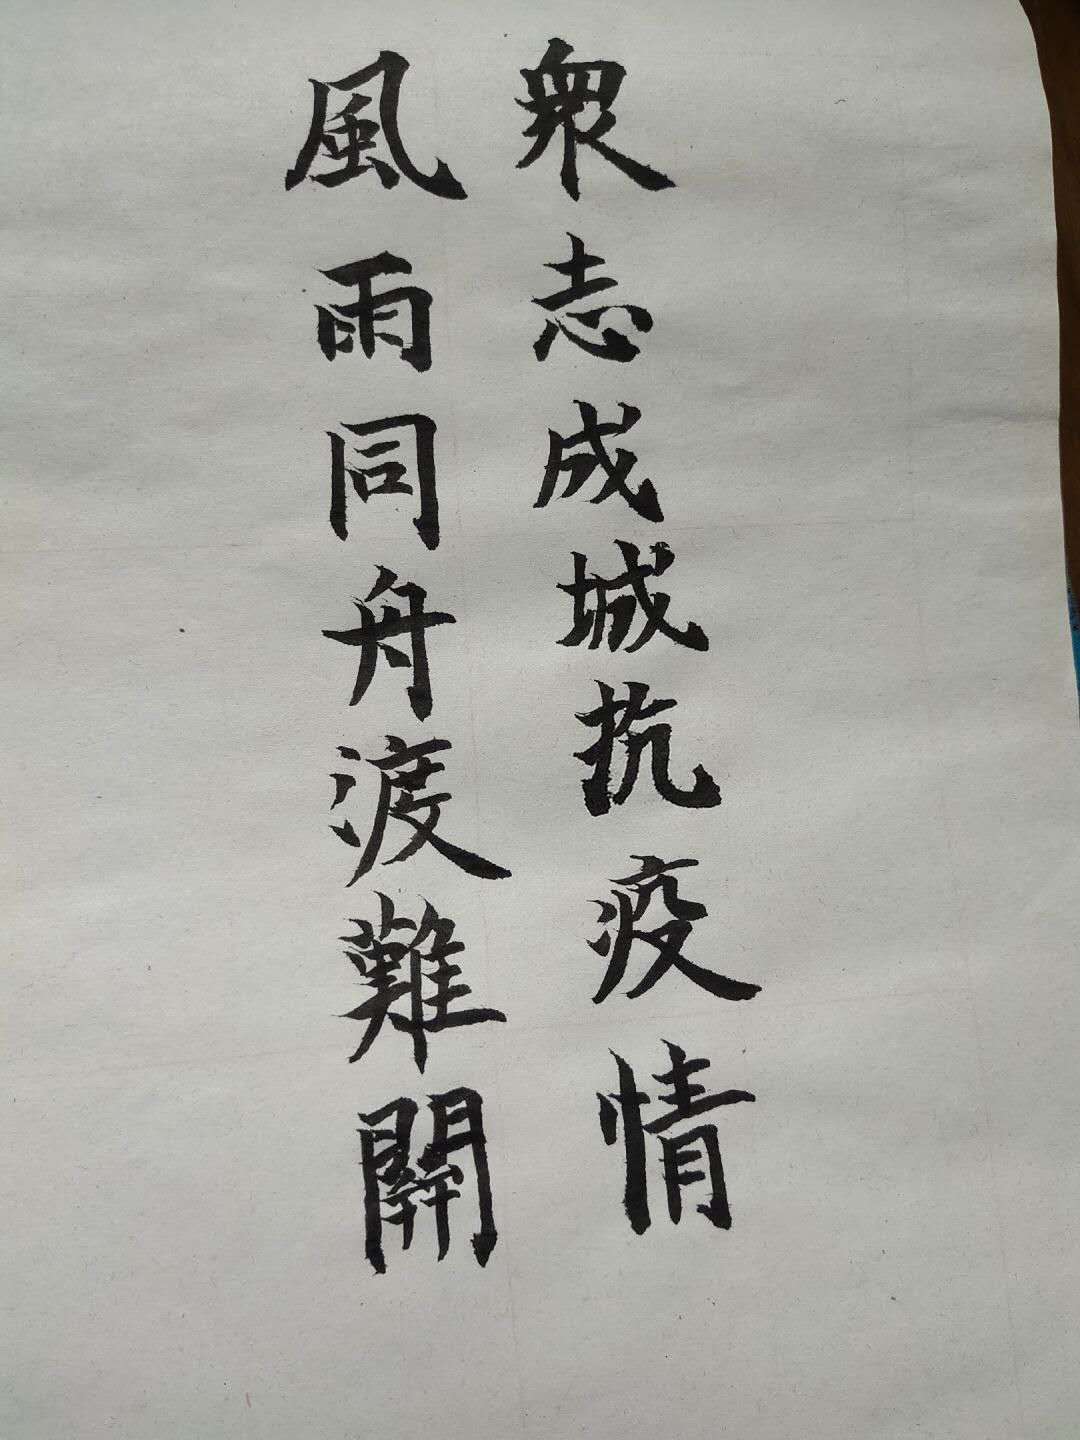 眾志成城抗疫情
風雨同舟渡難關